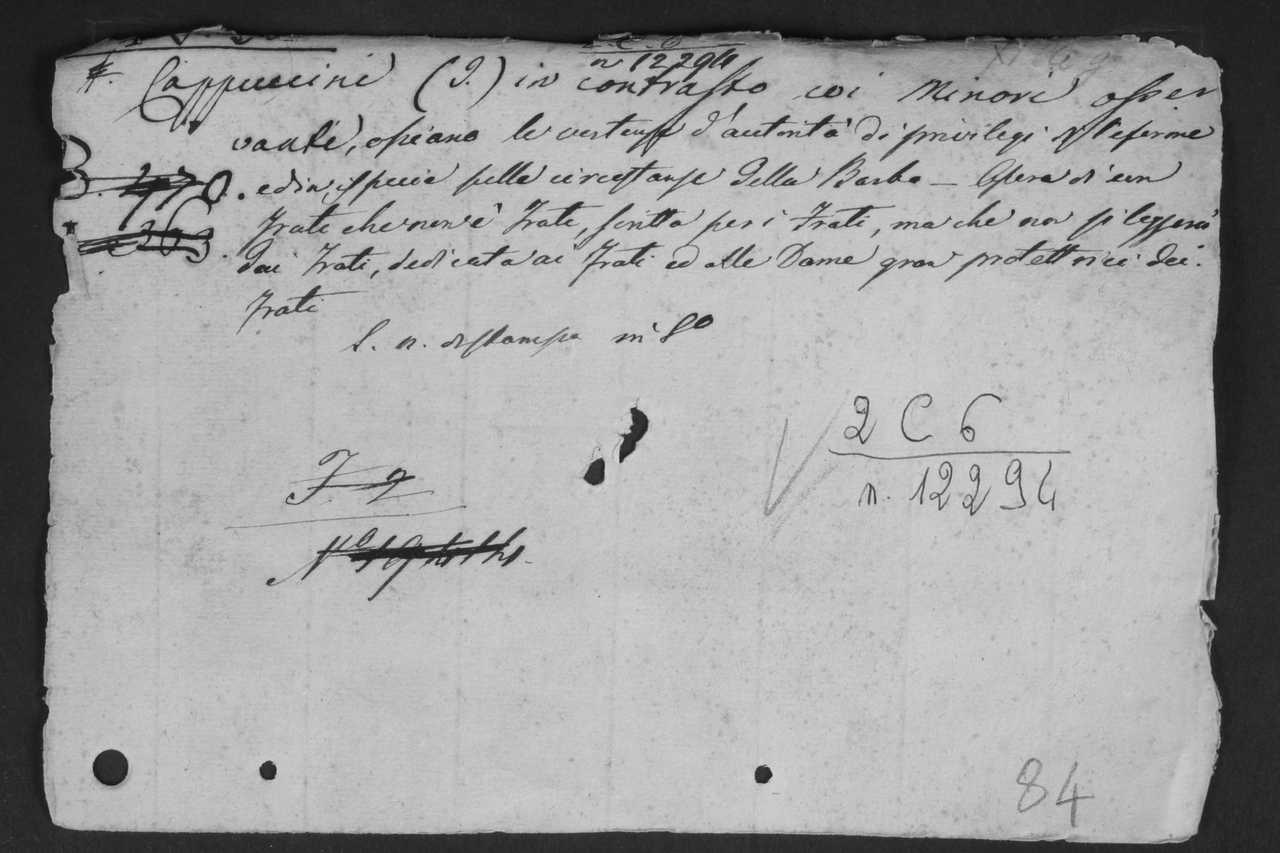 n 12294
*. Cappuccini (I.) in contrasto coi Minori osser
vanti, ossiano le vertenze d'autorità di privilegi
ed in ispecie sulla circostanze della Barba — Opera di un
frate che non è frate, scritta per i frati, ma che non si leggerà
dai frati, dedicata ai frati ed alle Dame gran protettrici dei
frati
S. n. di stampa in 8º
2 C 6
n. 12294
84